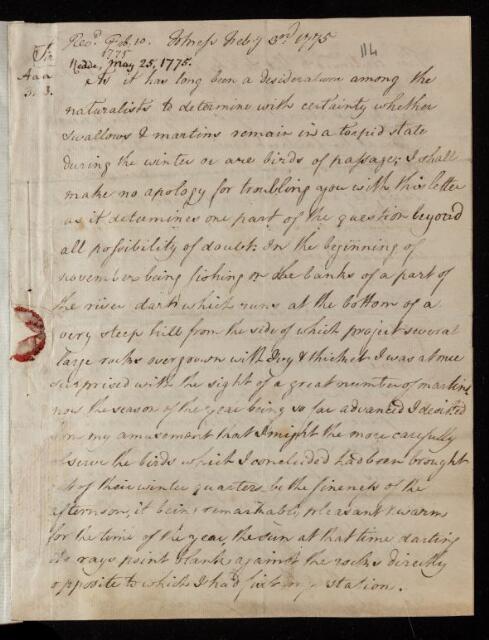 Rec.d Feb. 10. Totness Feb.y 3rd 1775
1775
114
Redde, May 25, 1775.
As it has long been a desideratum among the
naturalists to determine with certainty whether
Swallows & martins remain in a torpid state
during the winter or are birds of passage; I shall
make no apology for troubling you with this letter
as it determines one part of the question beyond
all possibility of doubt. In the beginning of
november being fishing on the banks of a part of
the river dart which runs at the bottom of a
very steep hill from the side of which project several
large rocks overgrown with Ivy & thicket I was at once
surprised with the sight of a great number of martins
now the season of the year being so far advanced I desisted
from my amusement that I might the more carefully
observe the birds which I concluded had been brought
out of their winter quarters by the fineness of the
afternoon, it being remarkably pleasant & warm
for the time of the year, the sun at that time darting
its rays point blank against the rocks directly
opposite to which I had fixt my station.